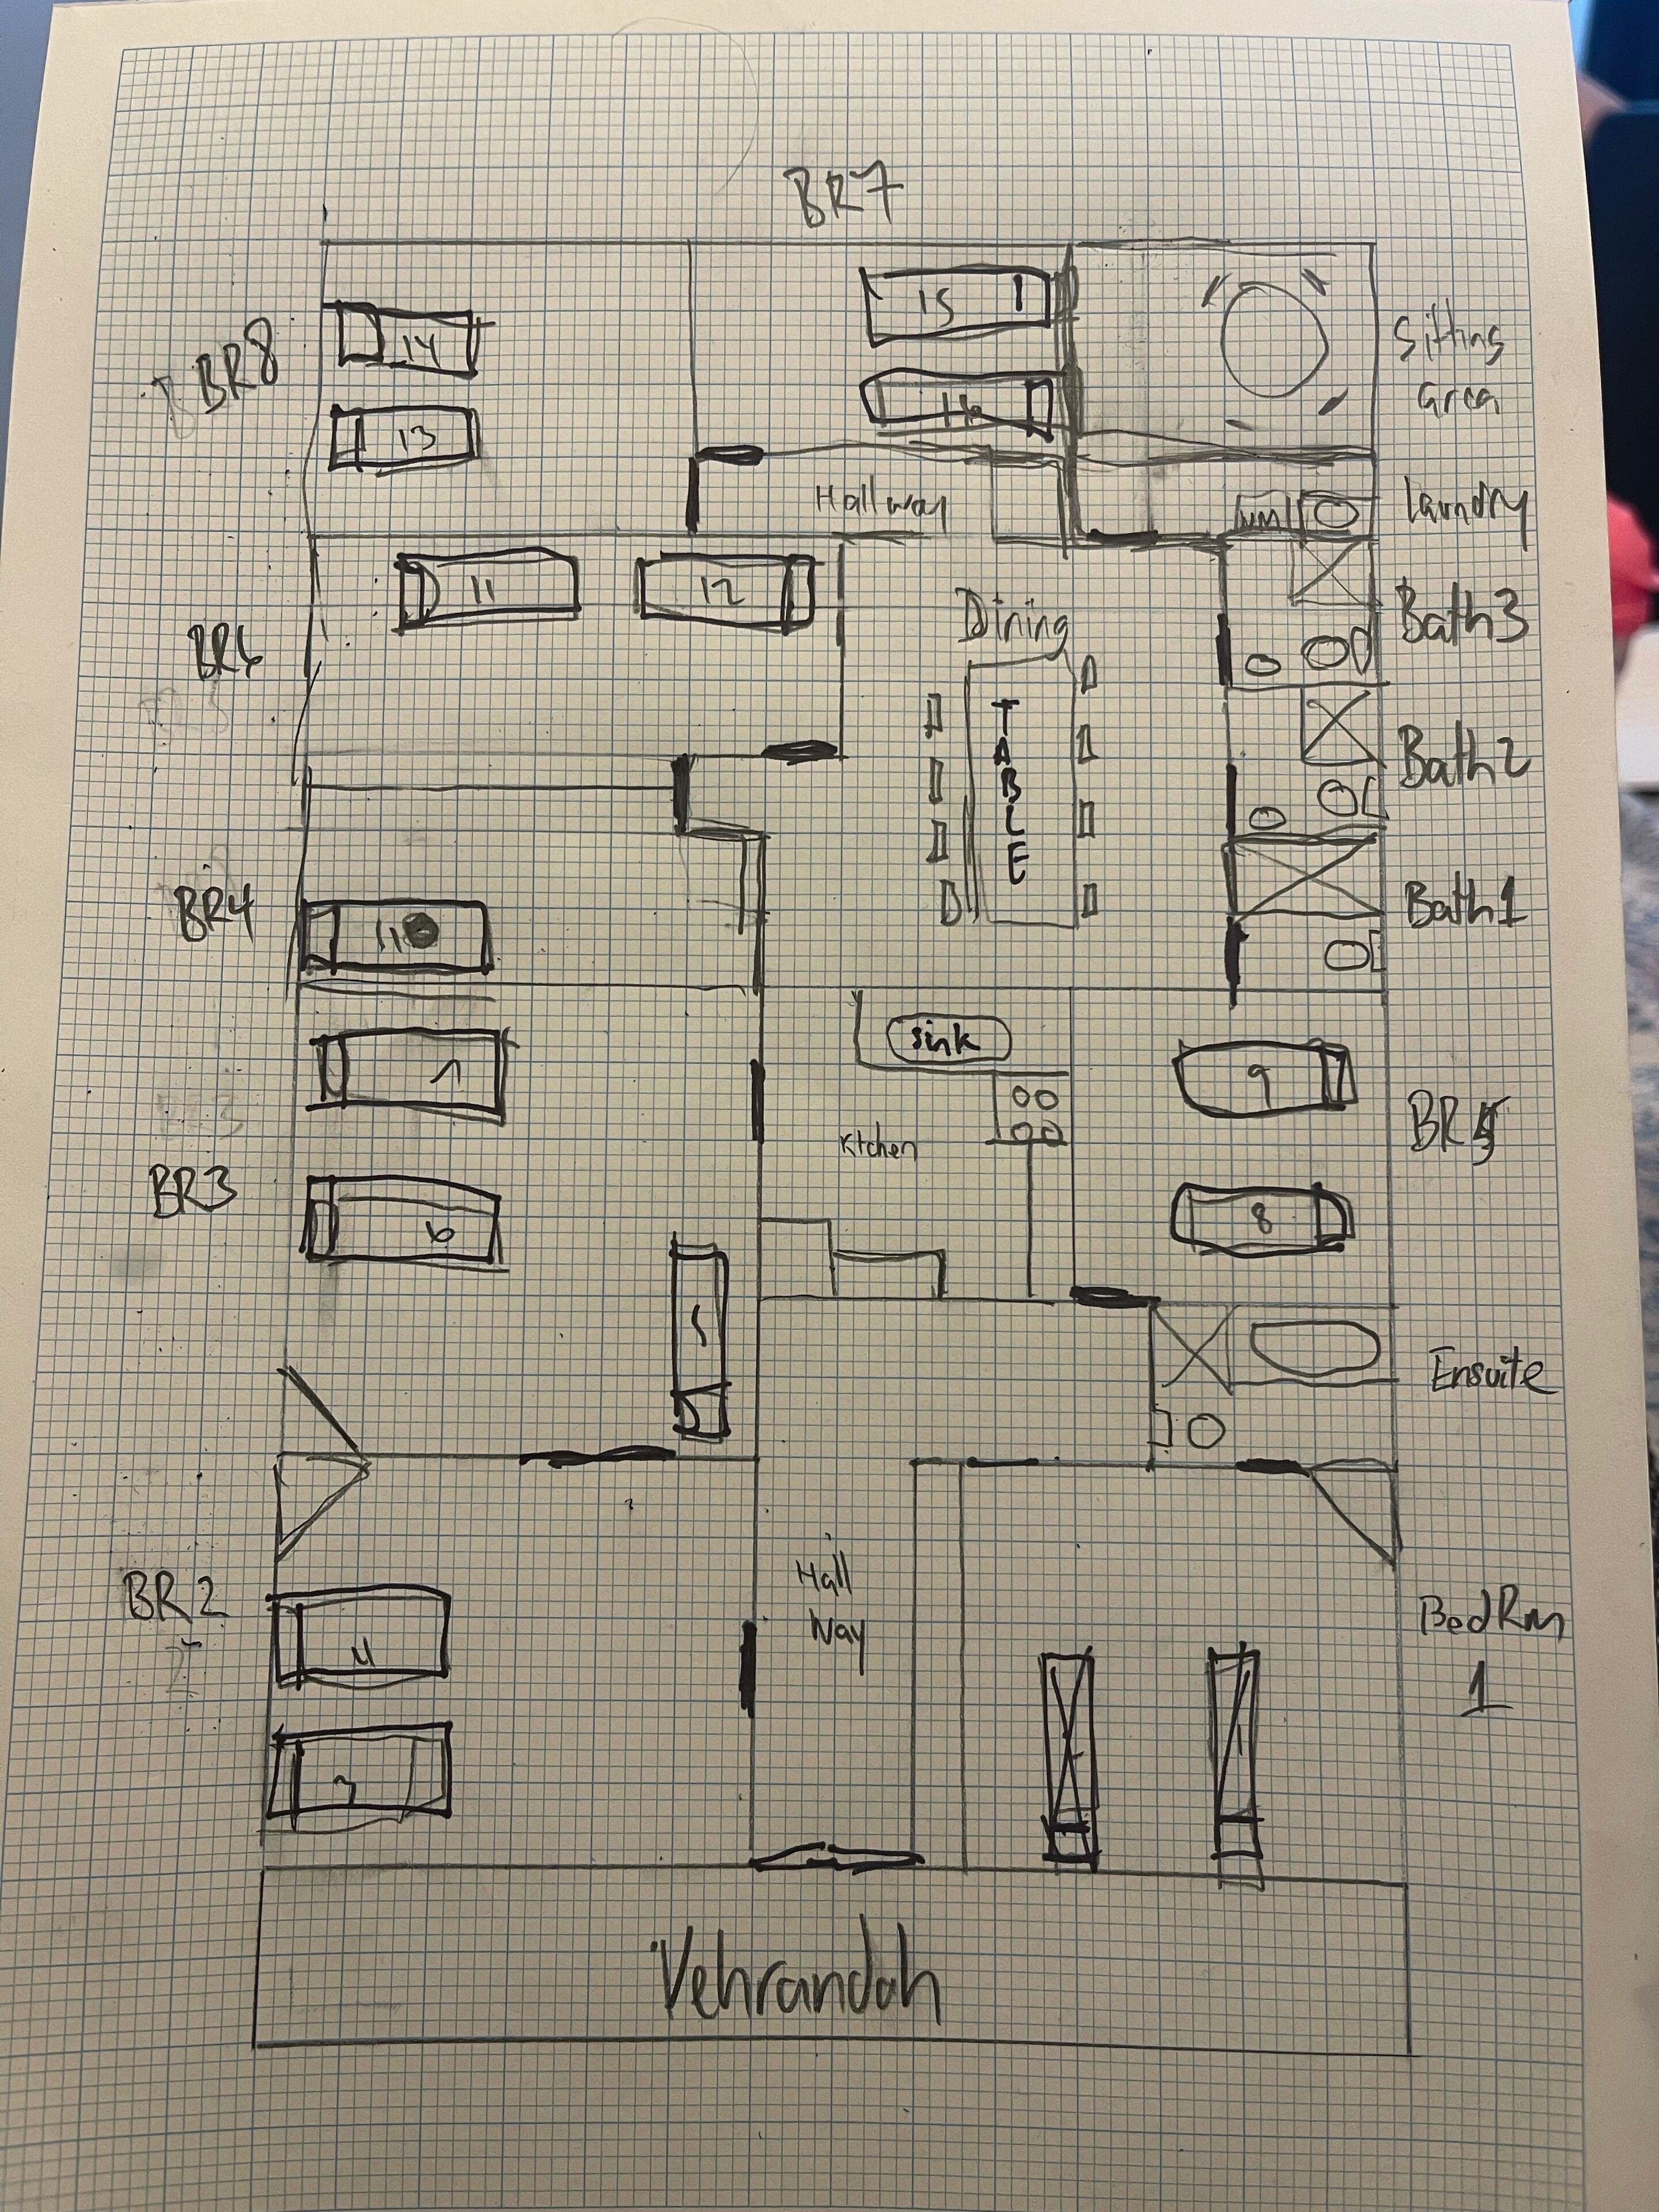 BR7
15
BR8
14
Sitting
area
16
13
Hallway
WM
Laundry
11
12
Dining
Bath3
BR6
TABLE
Bath2
BR4
Bath1
sink
7
9
BR5
Kitchen
BR3
6
8
5
Ensuite
Hall
Way
BR2
4
BedRm
1
3
Vehrandah